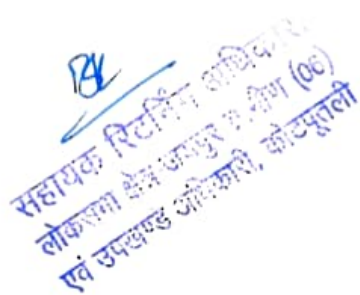 सहायक रिटर्निंग अधिकारी
लोकसभा क्षेत्र जयपुर ग्रामीण (06)
एवं उपखण्ड अधिकारी, कोटपूतली